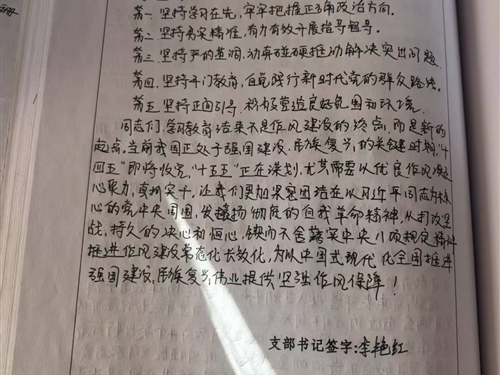 第一 坚持学习在先，牢牢把握正确政治方向。
第二 坚持务实精准，有力有效开展指导督导。
第三 坚持严的基调，动真碰硬推动解决突出问题
第四. 坚持开门教育，自觉践行新时代党的群众路线。
第五 坚持正向引导，积极营造良好氛围和环境.
同志们，学习教育结束不是作风建设的终点，而是新的
起点，当前我国正处于强国建设、民族复兴的关键时期，"十
四五"即将收官，"十五五"正在谋划，尤其需要以优良作风凝
心聚力，真抓实干，让我们更加紧密团结在以习近平同志为核
心的党中央周围，发扬彻底的自我革命精神，以打攻坚
战，持久的决心和恒心，锲而不舍落实中央八项规定精神
推进作风建设常态化长效化，为以中国式现代化全面推进
强国建设，民族复兴伟业提供坚强作风保障！
支部书记签字：李艳红